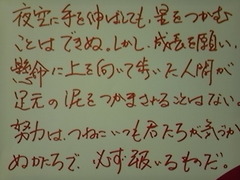 夜空に手を伸ばしても、星をつかむ
ことはできぬ。しかし、成長を願い、
懸命に上を向いて歩いた人間が
足元の泥をつかまされることはない。
努力は、つねにいつも君たちが気づか
ぬかたちで、必ず報いるものだ。